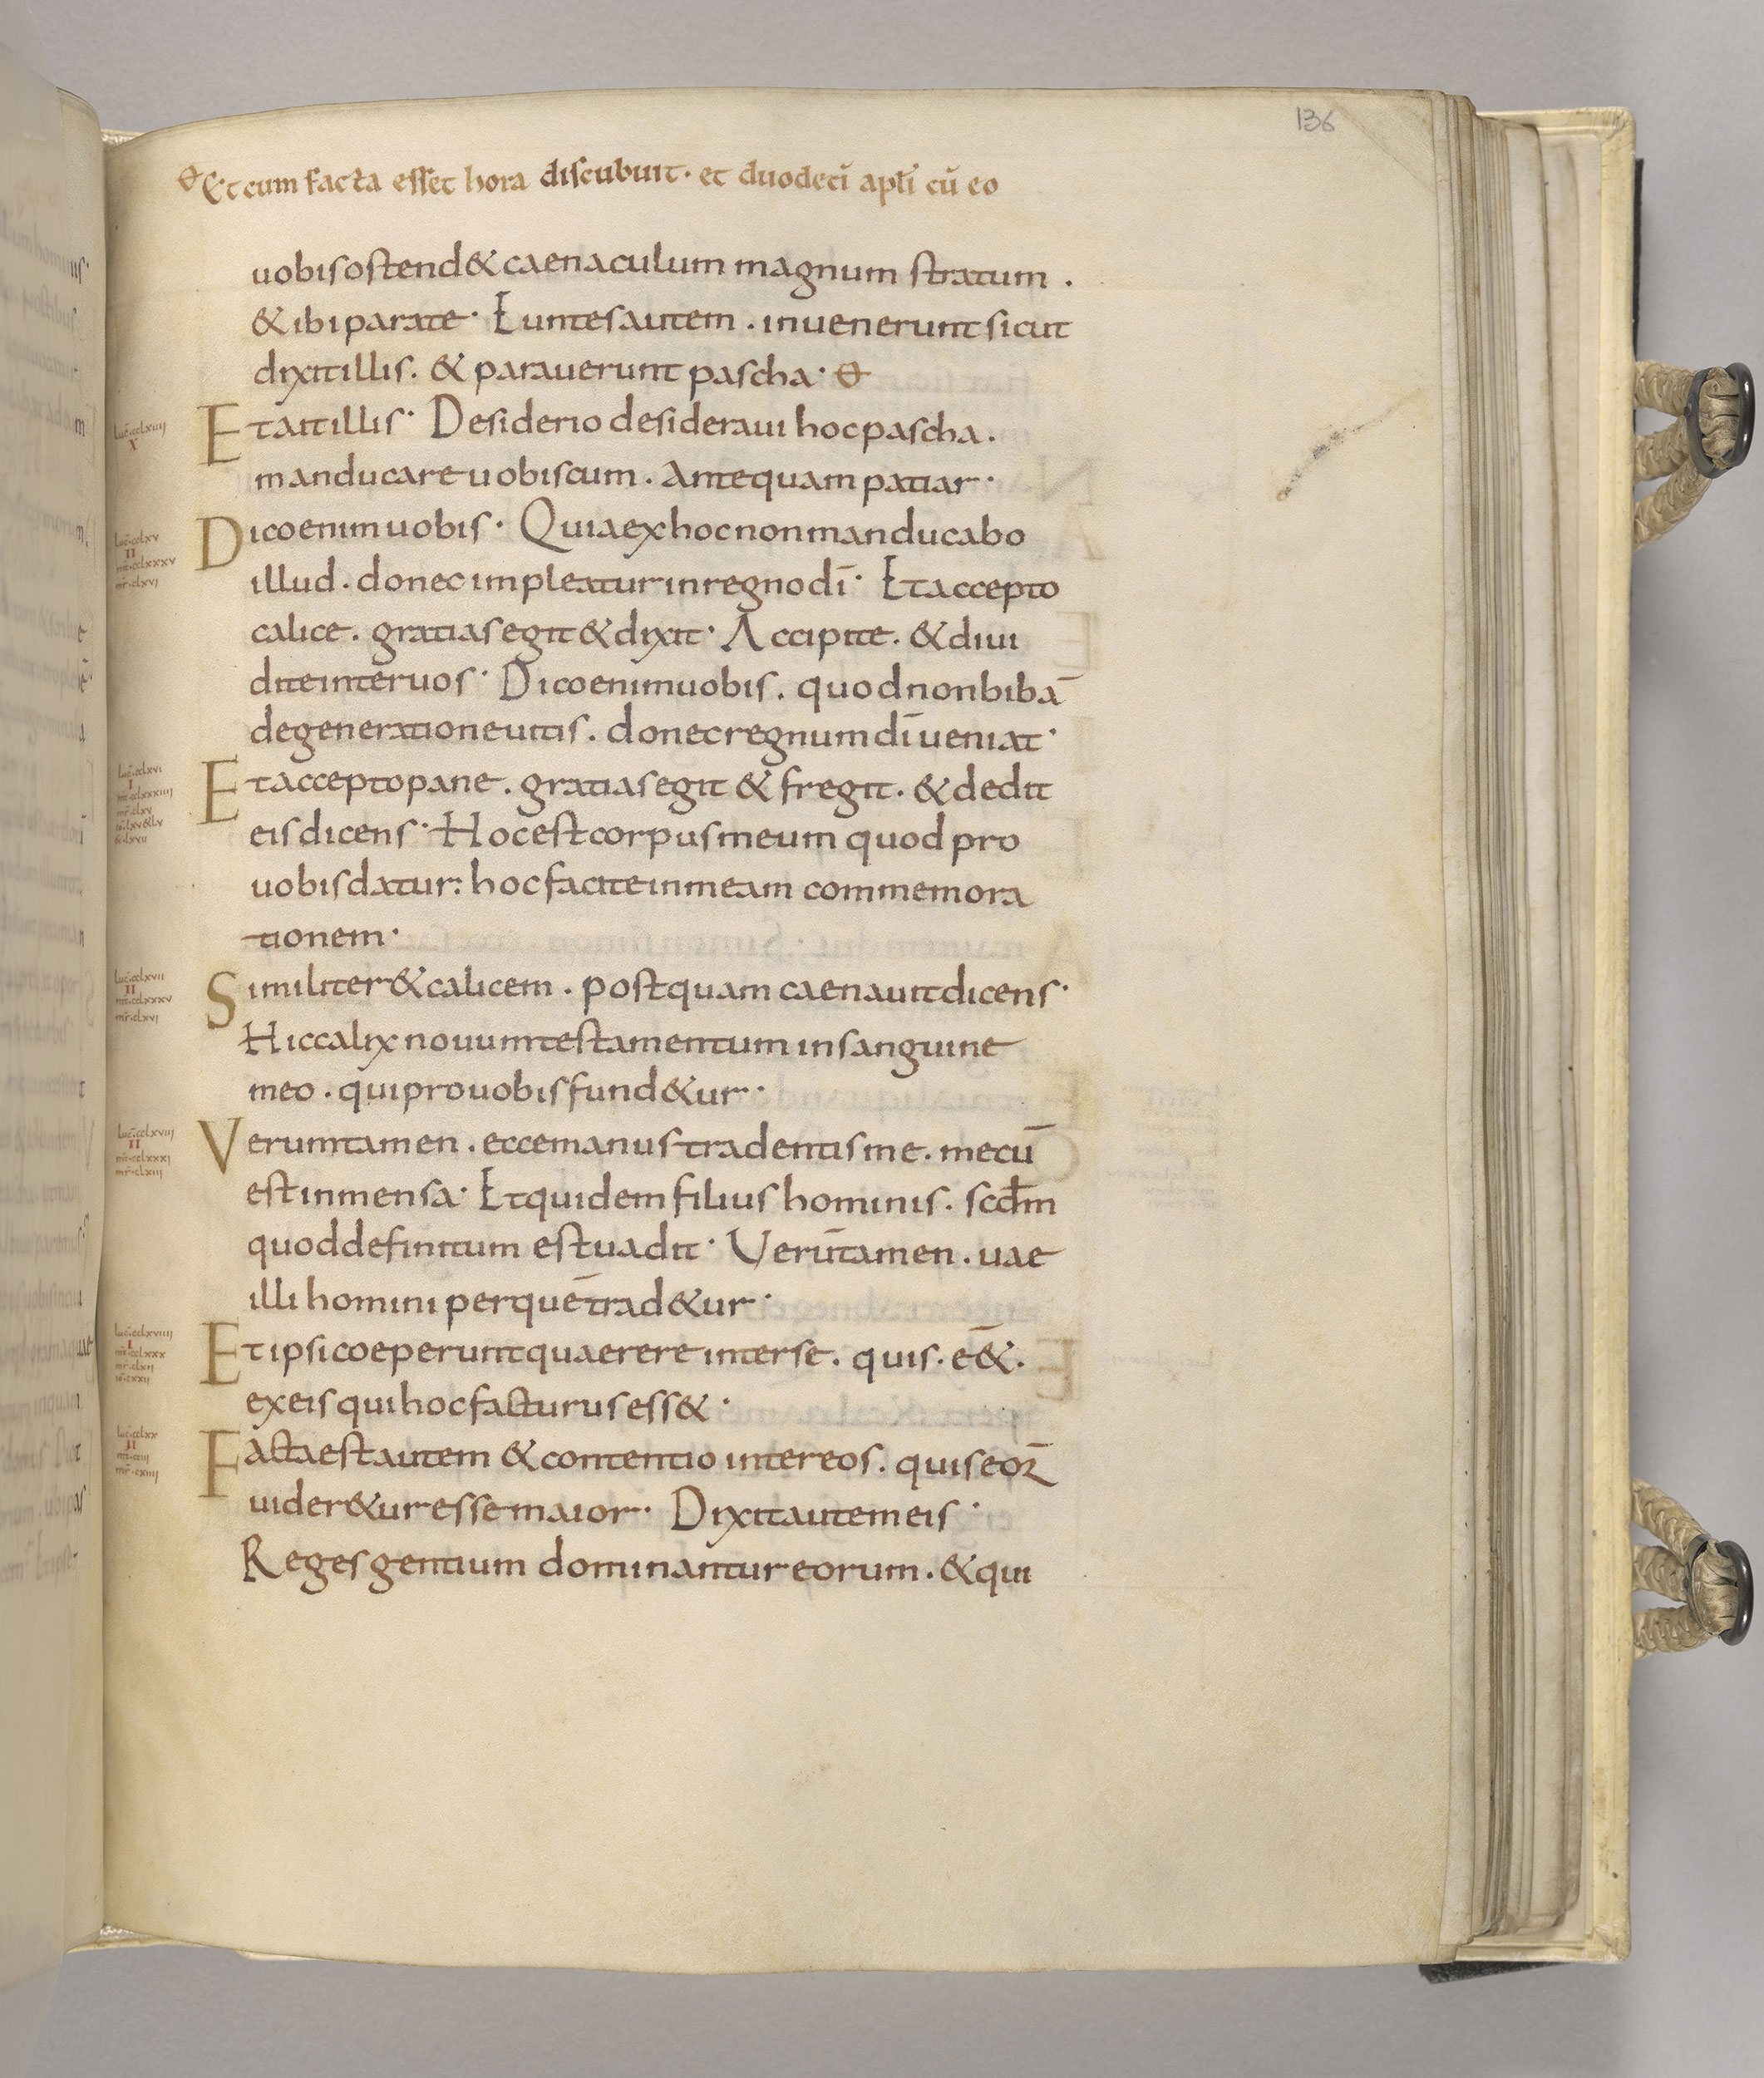 136
Et cum facta esset hora discubuit. et duodecī apłi cū eo
uobis ostend& caenaculum magnum stratum .
& ibi parate· Euntes autem . inuenerunt sicut
dixit illis. & parauerunt pascha·
Et ait illis· Desiderio desideraui hoc pascha .
manducare uobiscum . Antequam patiar·
Dico enim uobis· Quia ex hoc non manducabo
illud . donec impleatur in regno dī· Et accepto
calice . gratias egit & dixit· Accipite . & diui
dite inter uos· Dico enim uobis . quod non bibā
de generatione uitis . donec regnum dī ueniat·
Et accepto pane . gratias egit & fregit . & dedit
eis dicens· Hoc est corpus meum quod pro
uobis datur: hoc facite in meam commemora
tionem·
Similiter & calicem . postquam caenauit dicens·
Hic calix nouum testamentum in sanguine
meo . qui pro uobis fund&ur·
Veruntamen . ecce manus tradentis me . mecū
est in mensa· Et quidem filius hominis . scdm̄
quod definitum est uadit· Verūtamen . uae
illi homini per quē trad&ur·
Et ipsi coeperunt quaerere inter se . quis . e&̄ .
ex eis qui hoc facturus ess&·
Facta est autem & contentio inter eos . quis eoꝝ
uider&ur esse maior· Dixit autem eis·
Reges gentium dominantur eorum . & qui